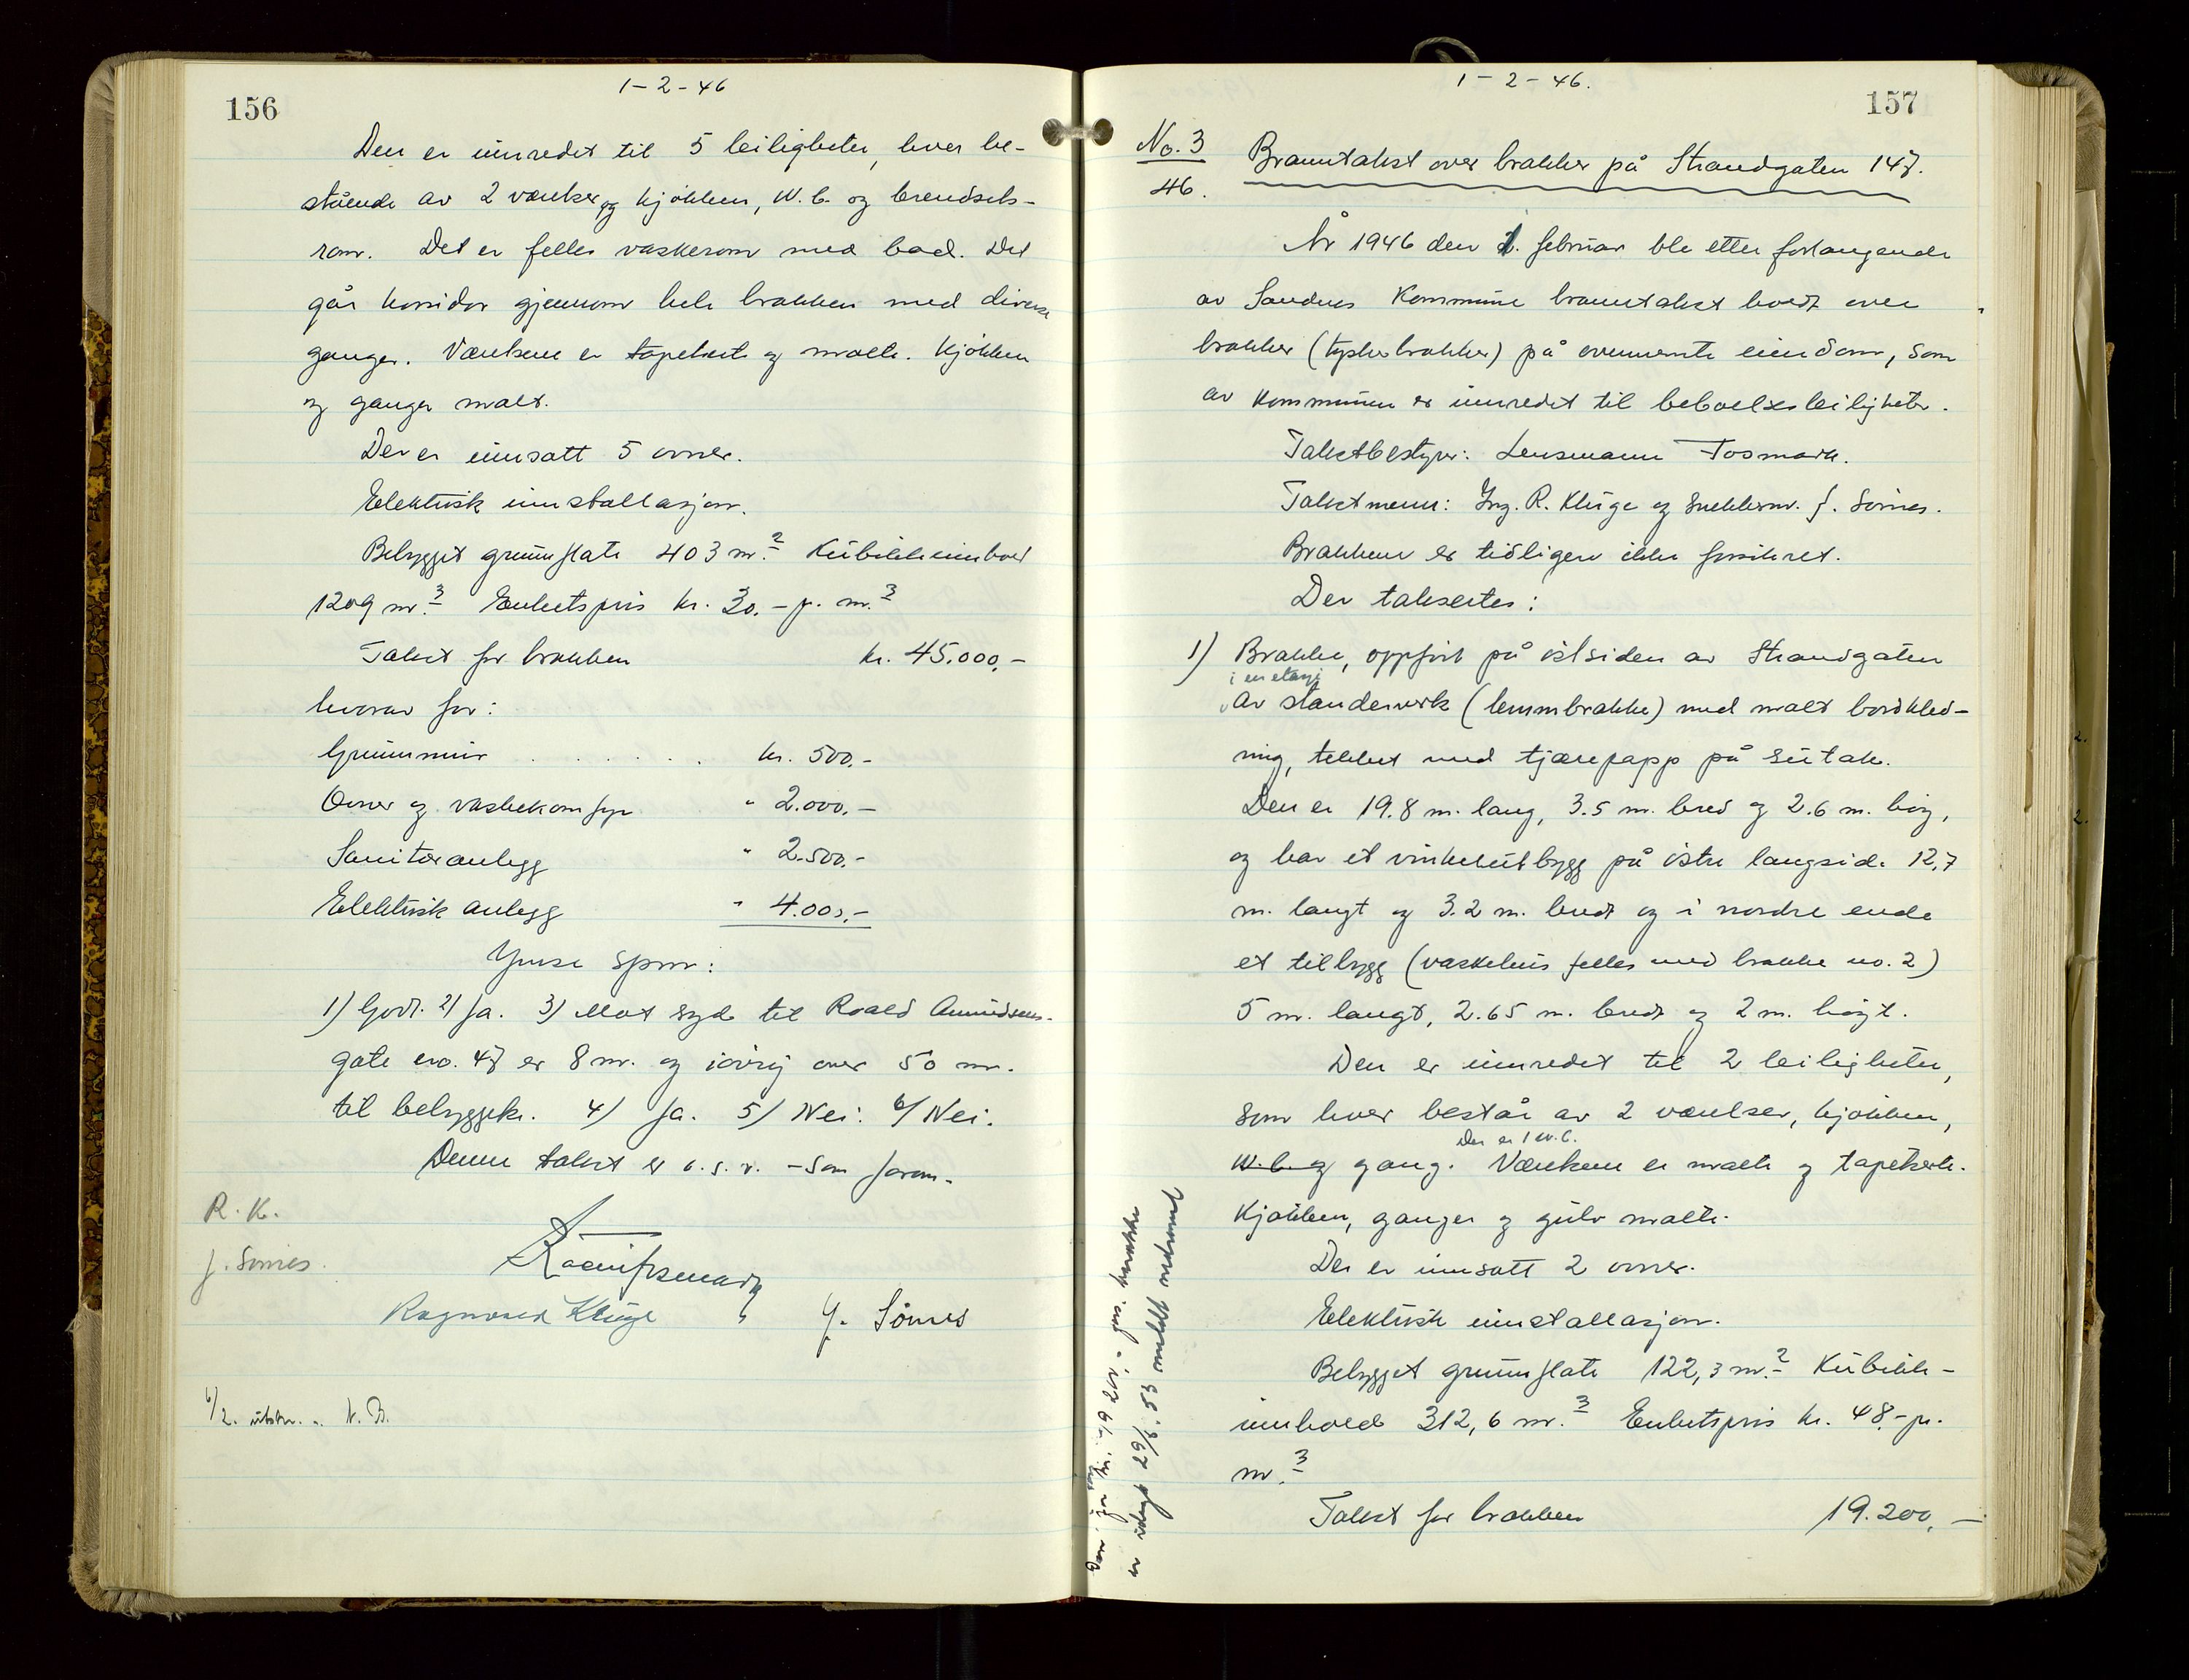 1-2-46
156
Den er innredet til 5 leiligheter, hver be-
stående av 2 værelser og kjøkken, W.C. og brendsels-
rom. Det er felles vaskerom med bad. Det
går korridor gjennom hele brakken med diverse
ganger. Værelsene er tapetsert og malte. Kjøkken
og ganger malt.
Der er innsatt 5 ovner.
Elektrisk innstallasjon.
Bebygget grunnflate 403 m.2 Kubikkinnhold
1209 m.3 Enhetspris kr. 30.- p. m.3
Takst for brakken kr. 45.000,-
hvorav for:
Grunnmur . . . . . . kr. 500,-
Ovner og vaskekomfyr " 2.000,-
Sanitæranlegg " 2.500,-
Elektrisk anlegg " 4.000,-
Ymse spm:
1) Godt. 2) Ja. 3) Mot syd til Roald Amundsens-
gate no. 47 er 8 m. og iøvrig over 50 m.
til bebyggelse. 4) Ja. 5) Nei. 6) Nei.
Denne takst er o.s.v. - som foran.
R. K.
J. Sømes.
Ragnvald Kluge J. Sømes
6/2. utskr.
1-2-46.
157
No. 3
46.
Branntakst over brakker på Strandgaten 147.
År 1946 den 1. februar ble etter forlangende
av Sandnes Kommune branntakst holdt over
brakker (tyskerbrakker) på ovennevnte eiendom, som
av kommunen er innredet til beboelsesleiligheter.
Takstbestyrer: Lensmann Tosmark.
Takstmenn: Ing. R. Kluge og snekkerm. J. Sømes.
Brakkene er tidligere ikke forsikret.
Der taksertes:
1) Brakke, oppført på østsiden av Strandgaten
i en etasje
av stenderverk (lemmbrakke) med malt bordkled-
ning, tekket med tjærepapp på sutak.
Den er 19.8 m. lang, 3.5 m. bred og 2.6 m. høy,
og har et vinkelutbygg på østre langside 12,7
m. langt og 3.2 m. bredt og i nordre ende
et tilbygg (vaskehus felles med brakke no. 2)
5 m. langt, 2.65 m. bredt og 2 m. høyt.
Den er innredet til 2 leiligheter,
som hver består av 2 værelser, kjøkken,
Der er 1 W.C.
W.C. og gang. Værelsene er malte og tapetserte.
Kjøkken, ganger og gulv malte.
Der er innsatt 2 ovner.
Elektrisk innstallasjon.
Bebygget grunnflate 122,3 m.2 Kubikk-
innhold 312,6 m.3 Enhetspris kr. 48.- p.
m.3
Takst for brakken 19.200,-